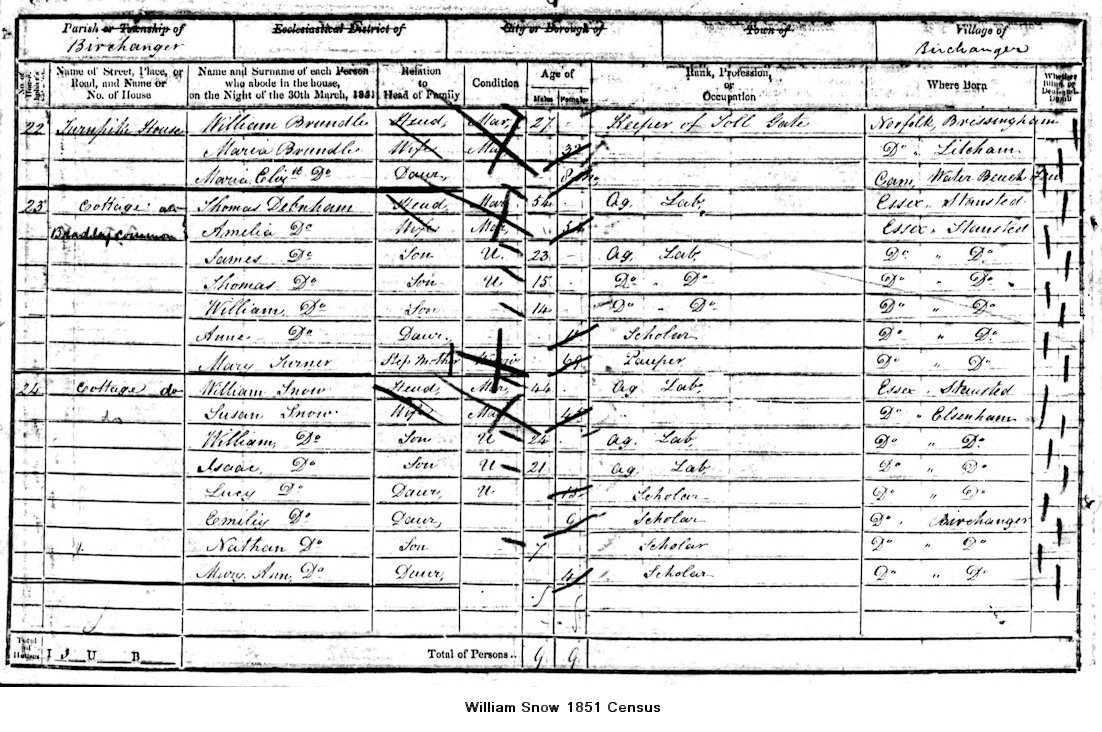 Parish or Township of Ecclesiastical District of City or Borough of Town of Village of
Birchanger Birchanger
Name of Street, Place, or Road, and Name or No. of House Name and Surname of each Person who abode in the house, on the Night of the 30th March, 1851 Relation to Head of Family Condition Age of Males Females Rank, Profession, or Occupation Where Born Whether Blind, or Deaf-and-Dumb
22 Turnpike House William Brundle Head Mar 27 Keeper of Toll Gate Norfolk, Brissingham
Maria Brundle Wife Mar 32 Do Litcham
Maria Elizth Do Daur Cam Water Beach
23 Cottage do Thomas Debnham Head Mar 54 Ag Lab Essex Stansted
Common Amelia Do Wife Mar Essex Stansted
James Do Son U 23 Ag Lab Do " Do
Thomas Do Son U 15 Do Do Do " Do
William Do Son 14 Do Do Do " Do
Anne Do Daur Scholar Do " Do
Mary Turner Step Mother 69 Pauper Do " Do
24 Cottage do William Snow Head Mar 44 Ag Lab Essex Stansted
do Susan Snow Wife Mar Do " Elsenham
William Do Son U 24 Ag Lab Do " Do
Isaac Do Son U 21 Ag Lab Do " Do
Lucy Do Daur U 13 Scholar Do " Do
Emily Do Daur 9 Scholar Do Birchanger
Nathan Do Son 7 Scholar Do " Do
Mary Ann Do Daur 4 Scholar Do " Do
Total of Houses I 3 U B Total of Persons.. 9 9
William Snow 1851 Census